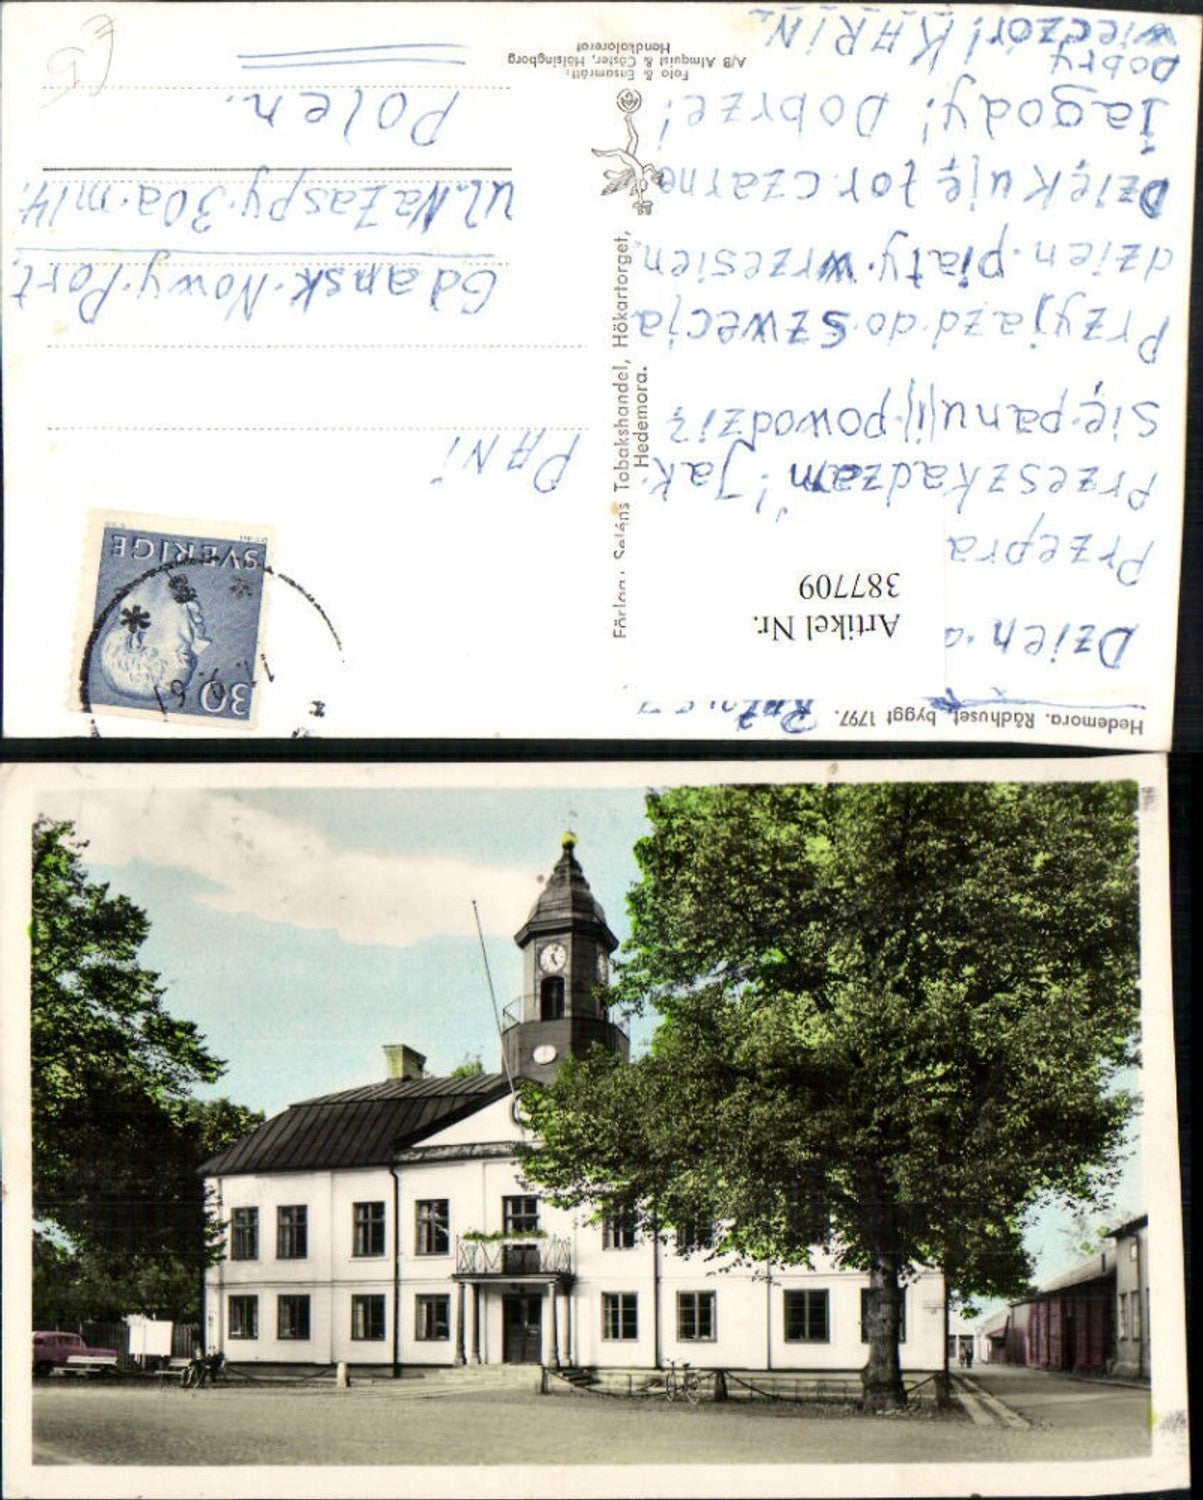 Hedemora. Rådhuset, byggt 1797.
Dzien
Artikel Nr.
387709
Przepra
Przeszkadzam! Jak.
się panuliji powodzi?
Przyjazd do szwecja
dzien. piaty. wrzesien.
Dziekuję for czarne
Jagody! Dobrze!
Dobry
wieczór! KARIN.
Förlag: Saléns Tobakshandel, Hökartorget,
Hedemora.
Foto & Ensamrätt:
A/B Almquist & Cöster, Hälsingborg
Handkolorerat
SVERIGE
30
PANI
Gdansk. Nowy. Port.
ul. Na Zaspy. 30a. m 14.
Polen.